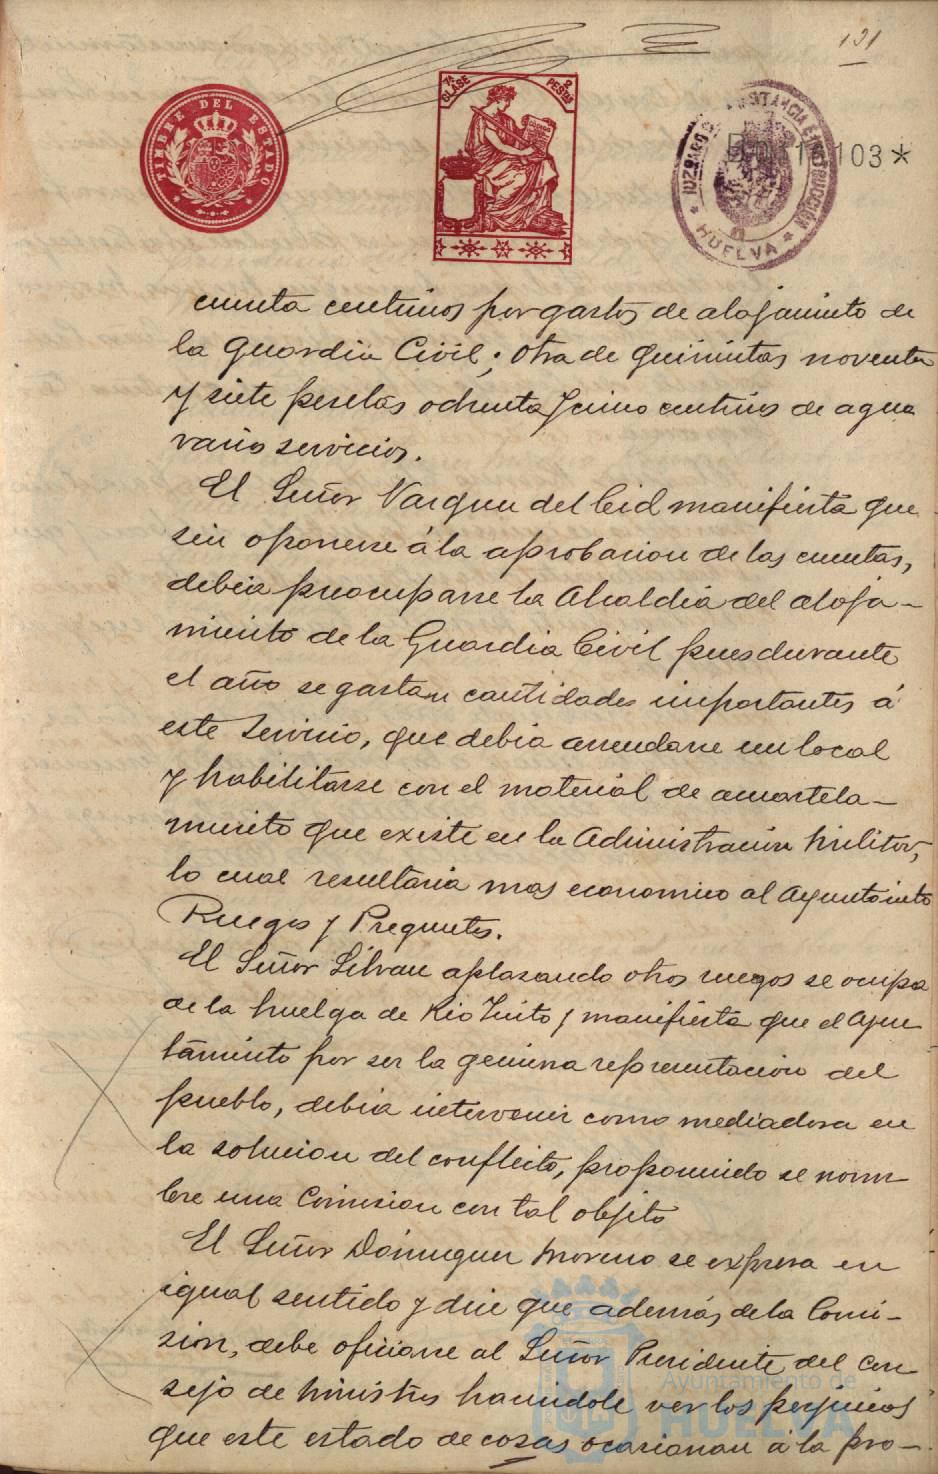 131
TIMBRE DEL ESTADO
7ª CLASE
2 PESETAS
JUZGADO DE INSTANCIA É INSTRUCCIÓN
* HUELVA *
103*
cuenta centimos por gastos de alojamiento de
la Guardia Civil; otra de quinientas noventa
y siete pesetas ochenta y cinco centimos de agua
varios servicios.
El Señor Vazquez del Cid manifiesta que
sin oponerse á la aprobacion de las cuentas,
debia preocuparse la Alcaldia del aloja-
miento de la Guardia Civil pues durante
el año se gastan cantidades importantes á
este servicio, que debia arrendarse un local
y habilitarse con el material de acuartela-
miento que existe en la Administracion Militar,
lo cual resultaria mas economico al Ayuntamiento
Ruegos y Preguntas.
El Señor Silvan aplazando otros ruegos se ocupa
de la huelga de Rio Tinto y manifiesta que el Ayun
tamiento por ser la genuina representacion del
pueblo, debia intervenir como mediadora en
la solucion del conflicto, proponiendo se nom-
bre una Comision con tal objeto
El Señor Dominguez Moreno se expresa en
igual sentido y dice que además de la Comi-
sion, debe oficiarse al Señor Presidente del Con
sejo de Ministros haciendole ver los perjuicios
que este estado de cosas ocasionan á la pro-
Ayuntamiento de
HUELVA